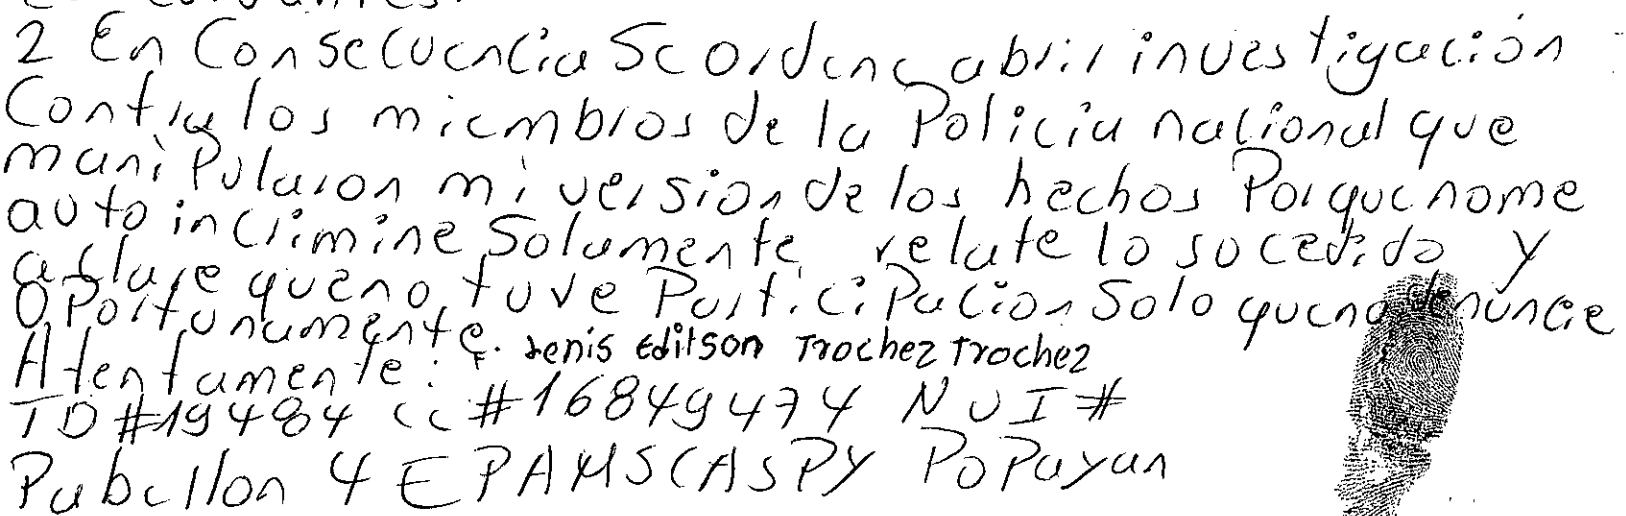 2 En Consecuencia Se ordene abrir investigación
Contra los miembros de la Policía nacional que
manipularon mi version de los hechos Porque no me
auto incrimine Solamente relate lo sucedido y
aclare que no tuve Participacion Solo que no denuncie
Oportunamente.
Atentamente: Jenis Editson Trochez Trochez
TD #19484 cc #16849474 NUI#
Pabellon 4 EPAMSCASPY Popayan